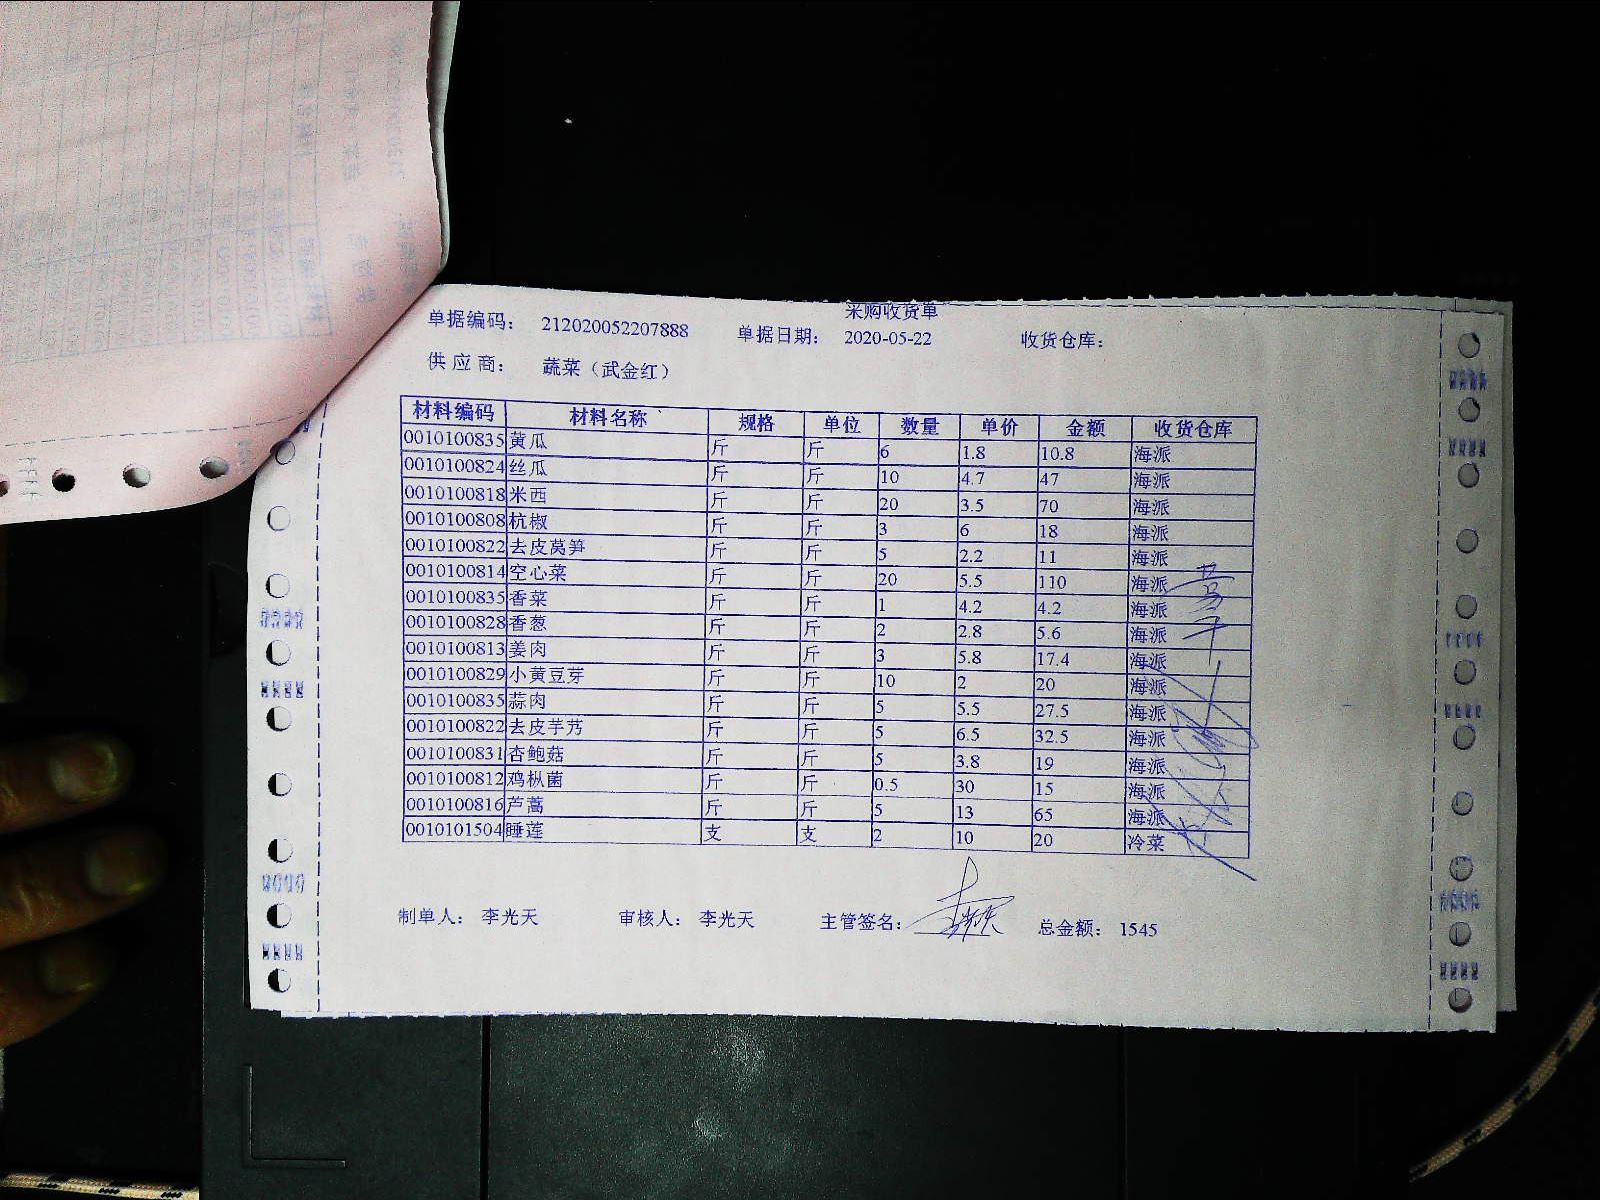 采购收货单
单据编码： 212020052207888 单据日期： 2020-05-22 收货仓库：
供 应 商： 蔬菜（武金红）
材料编码 材料名称 规格 单位 数量 单价 金额 收货仓库
0010100835 黄瓜 斤 斤 6 1.8 10.8 海派
0010100824 丝瓜 斤 斤 10 4.7 47 海派
0010100818 米西 斤 斤 20 3.5 70 海派
0010100808 杭椒 斤 斤 3 6 18 海派
0010100822 去皮莴笋 斤 斤 5 2.2 11 海派
0010100814 空心菜 斤 斤 20 5.5 110 海派
0010100835 香菜 斤 斤 1 4.2 4.2 海派
0010100828 香葱 斤 斤 2 2.8 5.6 海派
0010100813 姜肉 斤 斤 3 5.8 17.4 海派
0010100829 小黄豆芽 斤 斤 10 2 20 海派
0010100835 蒜肉 斤 斤 5 5.5 27.5 海派
0010100822 去皮芋艿 斤 斤 5 6.5 32.5 海派
0010100831 杏鲍菇 斤 斤 5 3.8 19 海派
0010100812 鸡枞菌 斤 斤 0.5 30 15 海派
0010100816 芦蒿 斤 斤 5 13 65 海派
0010101504 睡莲 支 支 2 10 20 冷菜
制单人： 李光天 审核人： 李光天 主管签名： 总金额： 1545